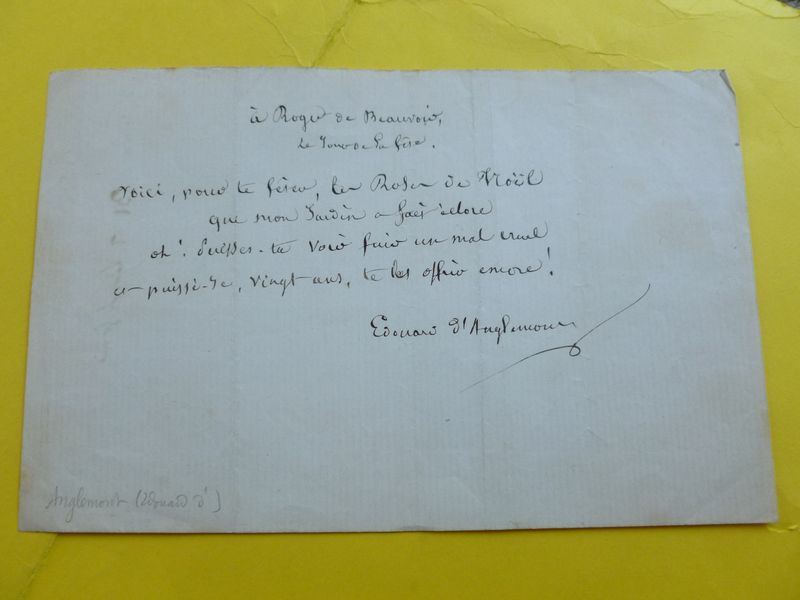 à Roger de Beauvoir,
Le Jour de Sa fête.
Voici, pour te fêter, les Roses de Noël
que mon Jardin a fait éclore
oh! Puisses-tu voir fuir un mal cruel
et puissé-Je, vingt ans, te les offrir encore!
Edouard d'Anglemont
Anglemont (Edouard d')